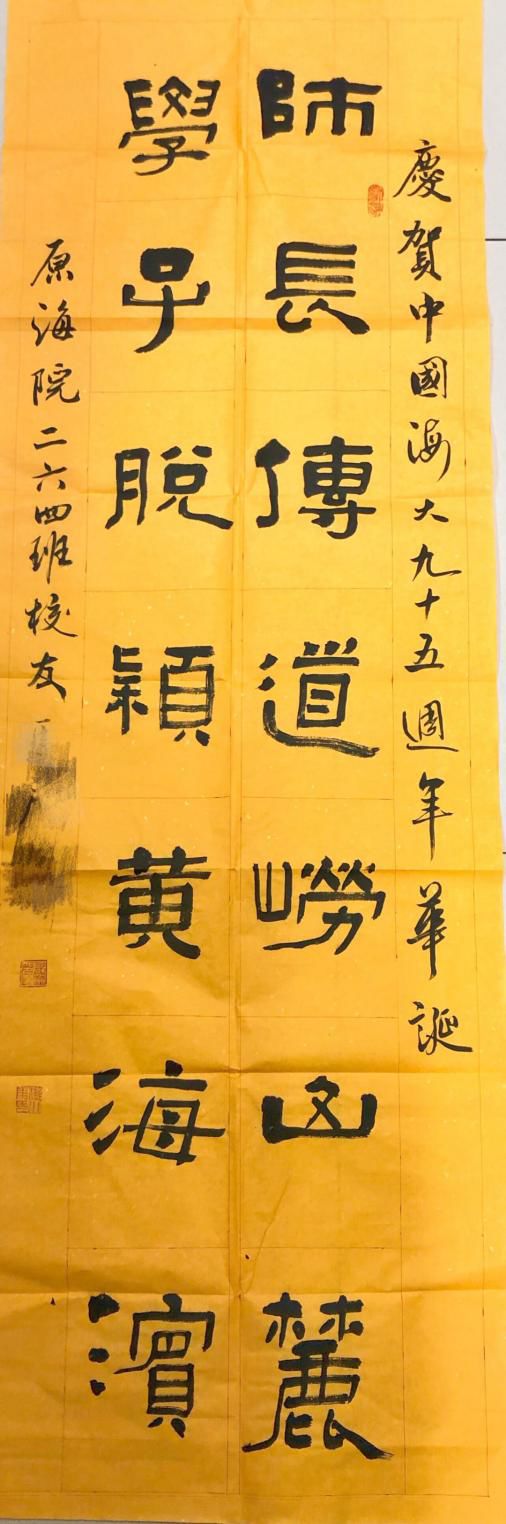 慶賀中國海大九十五週年華誕
師長傳道嶗山麓
學子脫穎黄海濱
原海院二六四班校友